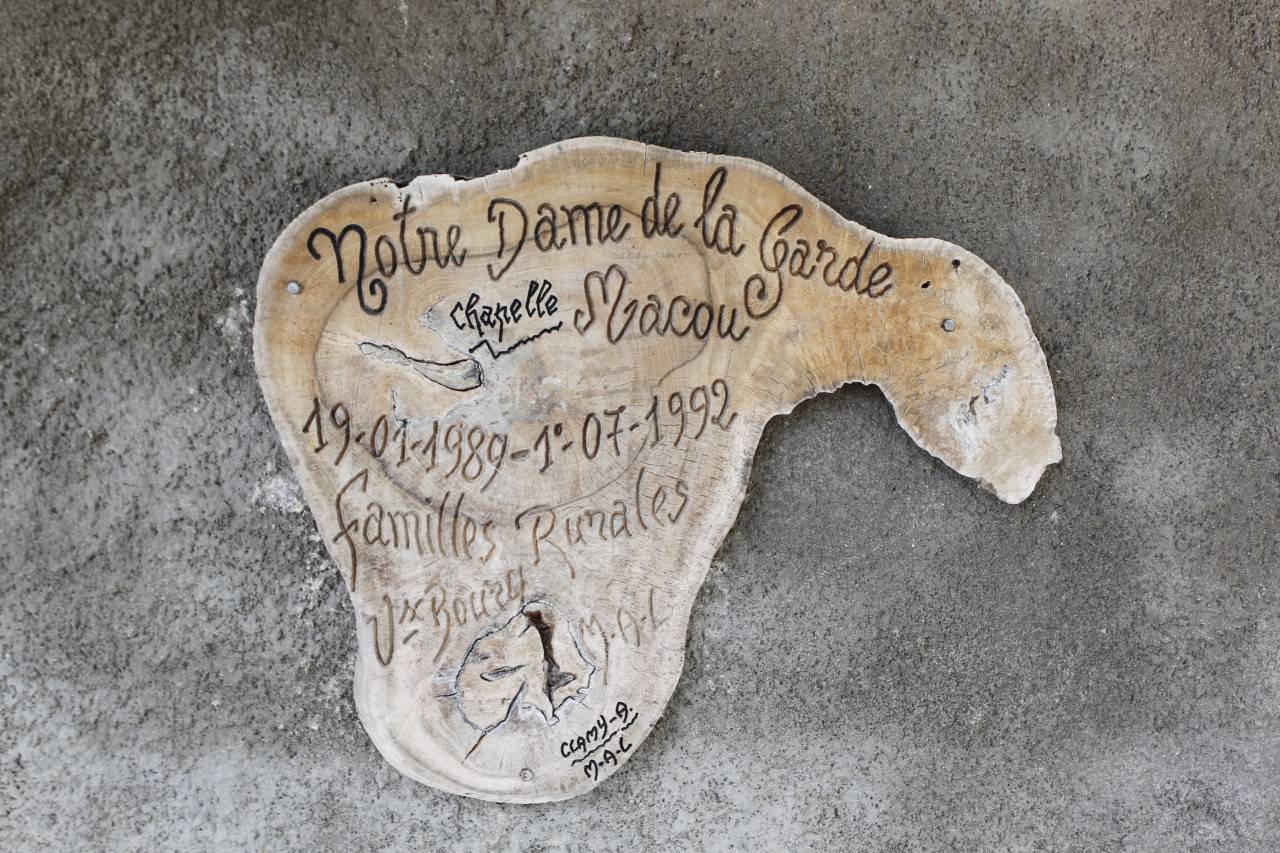 Notre Dame de la Garde
Chapelle Macou
19-01-1989-1°-07-1992
Familles Rurales
Vx Bourg M.A.L
CLAMY-A.
M-A-L